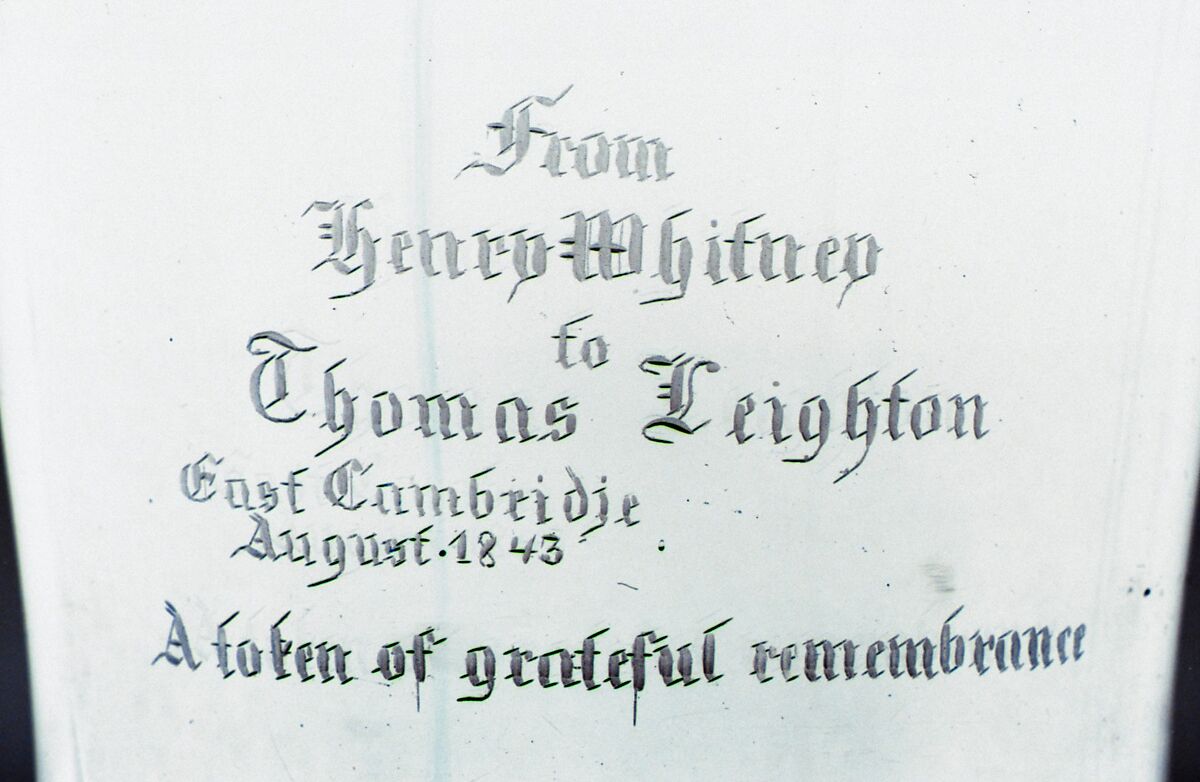 From
Henry Whitney
to
Thomas Leighton
East Cambridje
August. 1843
A token of grateful remembrance